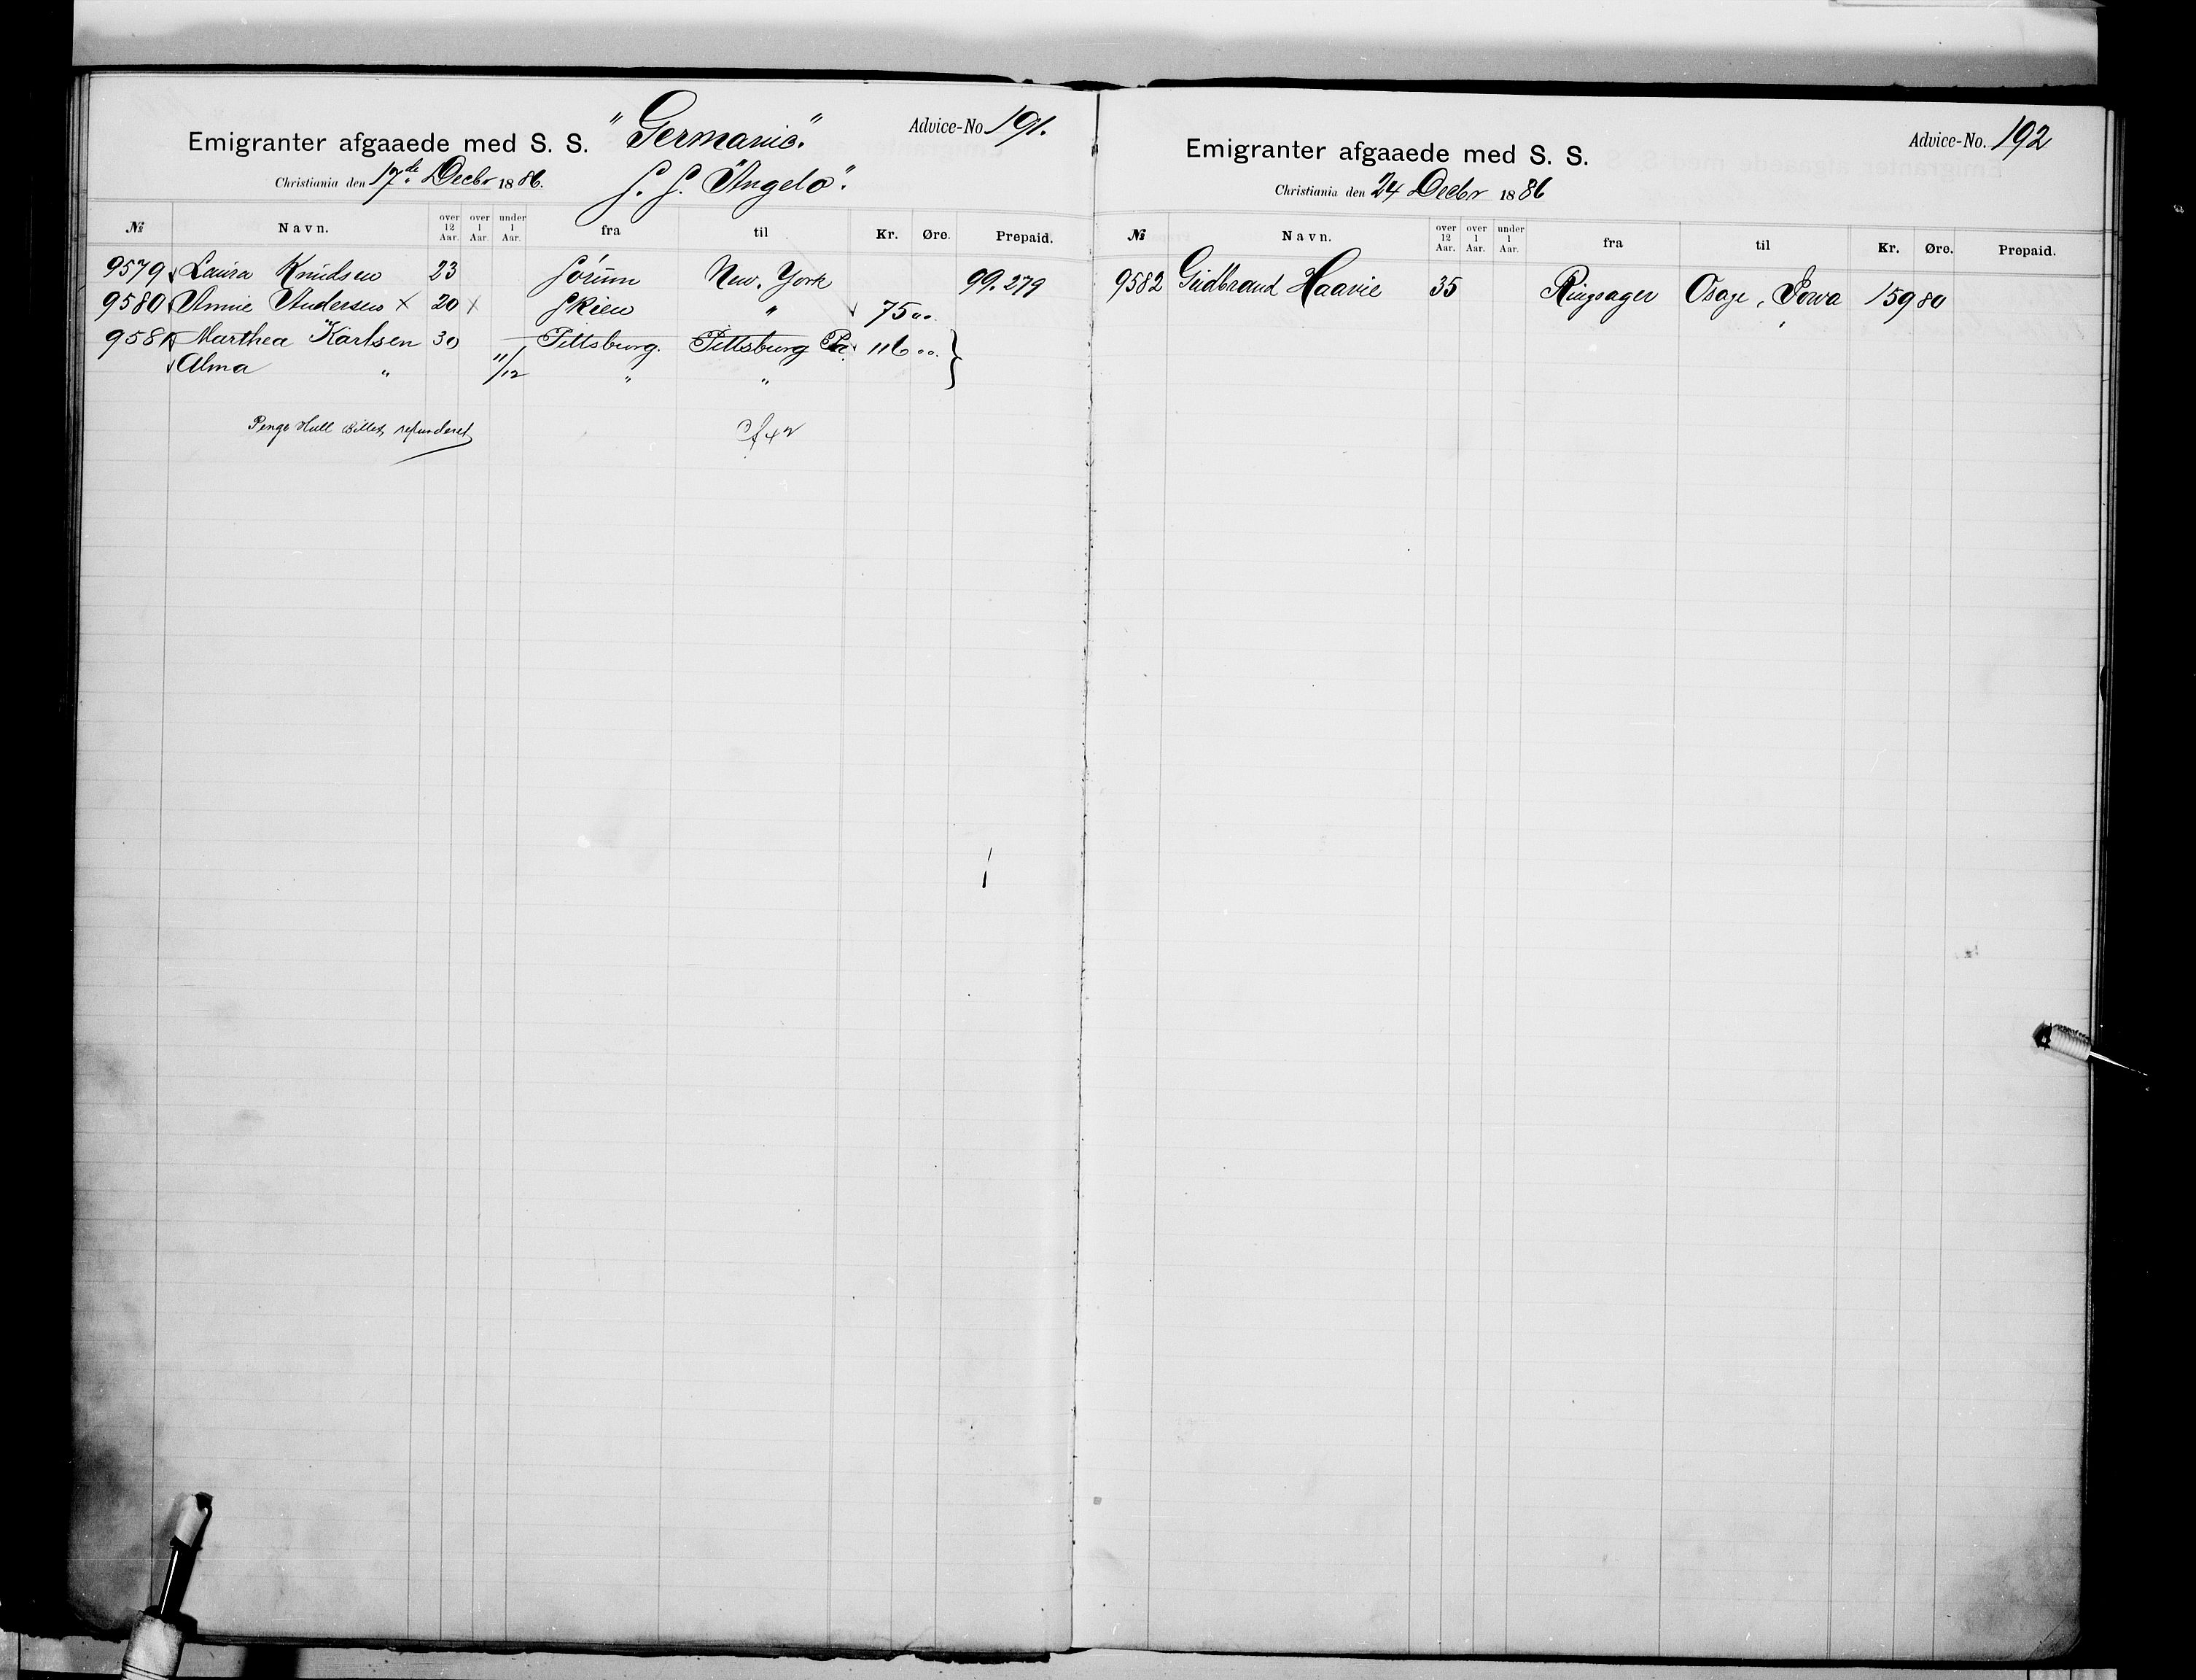 Emigranter afgaaede med S. S. "Germanic". Advice-No 191.
Christiania den 17de Decbr 1886. S. S. "Angelo".
№ Navn. over 12 Aar. over 1 Aar. under 1 Aar. fra til Kr. Øre. Prepaid.
9579 Laura Knudsen 23 Sørum New. York 99.279
9580 Annie Andersen x 20 x Skien " 75 00
9581 Marthea Karlsen 30 Pittsburg. Pittsburg Pa. 116 00
Alma " 11/12 " "
Penge Hull Billet, refunderet
Emigranter afgaaede med S. S. Advice-No. 192
Christiania den 24 Decbr 1886
№ Navn. over 12 Aar. over 1 Aar. under 1 Aar. fra til Kr. Øre. Prepaid.
9582 Gudbrand Haavie 35 Ringsager Osage, Iowa 159 80